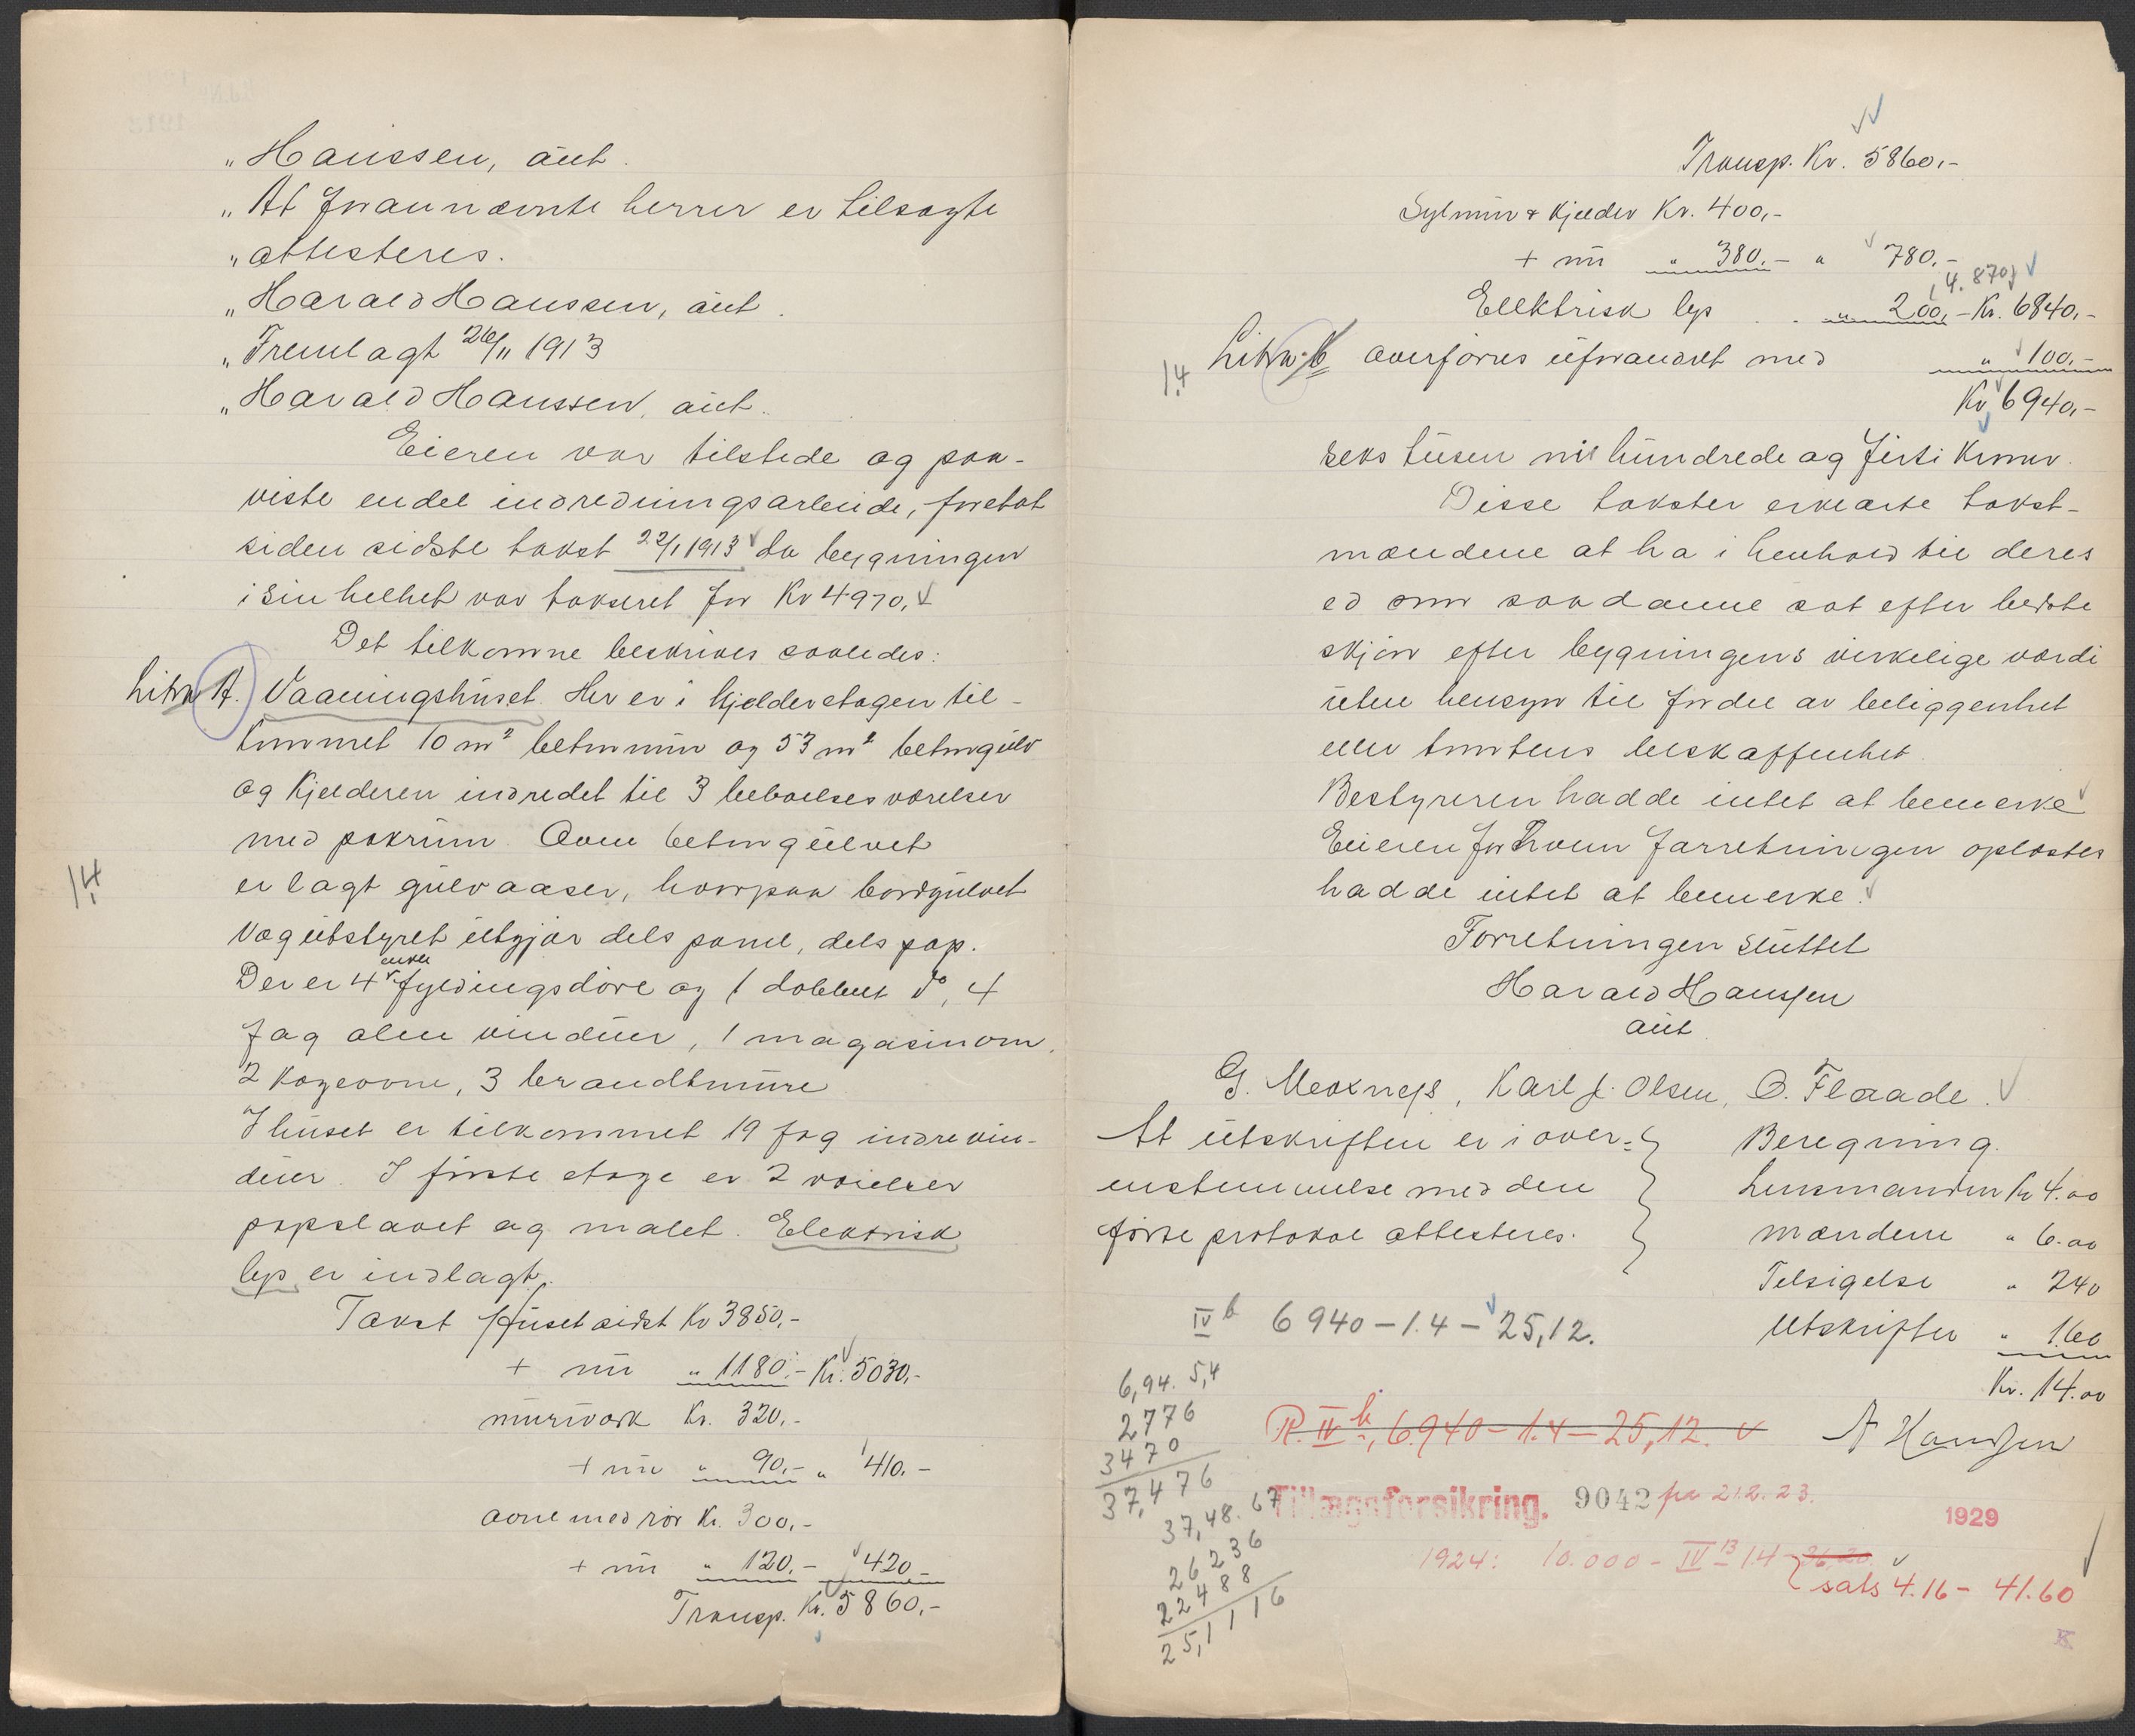 „Hanssen, aut.
„At frannævnte herrer er tilsagte
„attesteres.
„Harald Hanssen, aut.
„Fremlagt 26/11 1913
„Harald Hanssen, aut.
Eieren var tilstede og paa-
viste endel indredningsarbeide, foretat
siden sidste takst 22/1 1913 da bygningen
i sin helhet var taksert for Kr 4970,-
Det tilkomne beskrives saaledes:
Litra A. Vaaningshuset. Her er i kjelderetagen til-
kommet 10 m² betonmur og 53 m² betongulv
og Kjelderen indredet til 3 beboelsesværelser
med pakrum. Over betongulvet
1.4
er lagt gulvaaser, hvorpaa bordgulvet
Vægutstyret utgjør dels panel, dels pap.
Der er 4 enkle fyldingsdøre og 1 dobbelt do, 4
fag alm vinduer, 1 magasinovn,
2 Kogeovne, 3 brandtmure
I huset er tilkommet 19 fag indrevin-
duer. I første etage er 2 værelser
papslaaet og malet. Elektrisk
lys er indlagt.
Takst Huset sidst Kr 3850,-
+ nu „ 1180,- Kr. 5030,-
murværk Kr. 320,-
+ nu „ 90,- „ 410,-
ovne med rør Kr. 300,-
+ nu „ 120,- 420,-
Transp. Kr. 5860,-
Transp. Kr. 5860,-
Sylmur & Kjelder Kr. 400,-
+ nu „ 380,- „ 780,-
4.870
Ellektrisk lys . . „ 200,- Kr. 6840,-
1.4 Litra b overføres uforandret med „ 100,-
Kr 6940,-
seks tusen nihundrede og firti Kroner.
Disse takster erklærte takst-
mændene at ha i henhold til deres
ed som saadanne sat efter bedste
skjøn efter bygningens virkelige værdi
uten hensyn til fordel av beliggenhet
eller tomtens beskaffenhet.
Bestyreren hadde intet at bemerke
Eieren for hvem forretningen oplæstes
hadde intet at bemerke.
Forretningen sluttet
Harald Hanssen
aut
Karl J. Olsen, O. Flaade.
At utskriften er i over-
enstemmelse med den
førte protokol attesteres.
Beregning.
Lensmanden Kr 4.00
mændene „ 6.00
Tilsigelse „ 240
Utskrifter „ 1.60
Kr. 14.00
A Hanssen
IV b 6940 – 1.4 – 25,12.
6,94. 5,4
2776
3470
37,476
37,48. 67
26236
22488
25,1116
R. IV b, 6.940 – 1.4 – 25,12.
Tillægsforsikring. 9042 fra 21.2.23.
1929
1924: 10.000 – IV 13 1.4
sats 4.16 – 41.60
K.